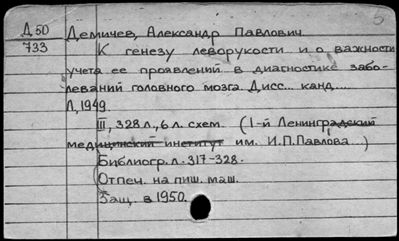 5
Д 50
733
Демичев, Александр Павлович.
К генезу леворукости и о важности
учета ее проявлений в диагностике забо-
леваний головного мозга. Дисс... канд....
Л, 1949.
III, 328 л., 6 л. схем. (1-й Ленинградский
медицинский институт им. И.П.Павлова...)
Библиогр. л. 317-328.
Отпеч. на пиш. маш.
Защ. в 1950.